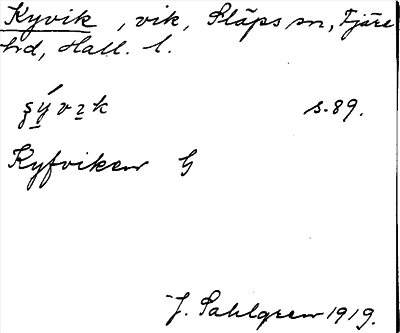 Kyvik, vik, Släps sn, Fjäre
hd, Hall. l.
s. 89.
Kyfviken G
J. Sahlgren 1919.